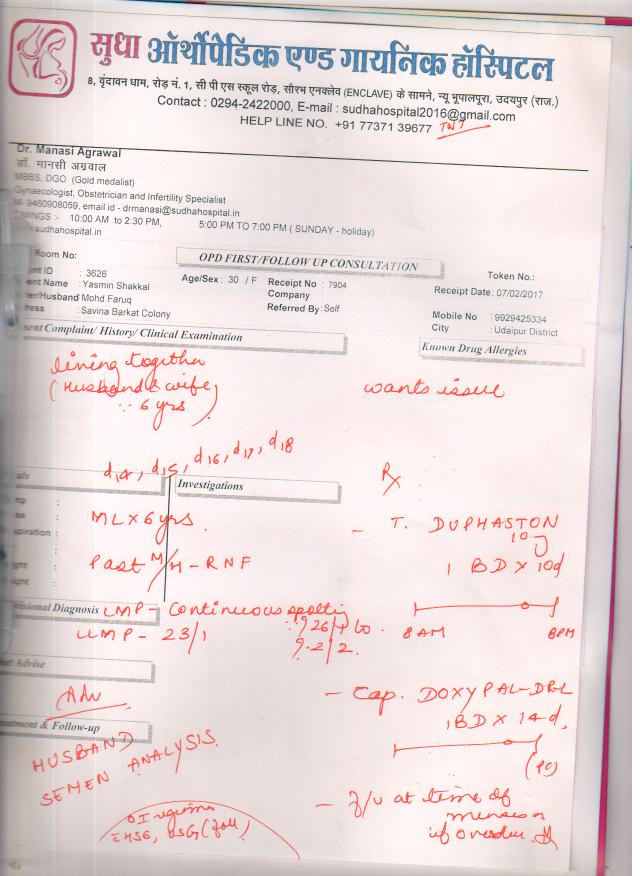 सुधा ऑर्थोपेडिक एण्ड गायनिक हॉस्पिटल
8, वृंदावन धाम, रोड़ नं. 1, सी पी एस स्कूल रोड़, सौरभ एनक्लेव (ENCLAVE) के सामने, न्यू भूपालपुरा, उदयपुर (राज.)
Contact : 0294-2422000, E-mail : sudhahospital2016@gmail.com
HELP LINE NO. +91 77371 39677
Dr. Manasi Agrawal
डॉ. मानसी अग्रवाल
MBBS, DGO (Gold medalist)
Gynaecologist, Obstetrician and Infertility Specialist
9460908059, email id - drmanasi@sudhahospital.in
TIMINGS :- 10:00 AM to 2:30 PM, 5:00 PM TO 7:00 PM ( SUNDAY - holiday)
sudhahospital.in
Room No:
OPD FIRST/FOLLOW UP CONSULTATION
Token No.:
ent ID : 3626 Age/Sex : 30 / F Receipt No : 7904 Receipt Date : 07/02/2017
ent Name : Yasmin Shakkal Company :
er/Husband Mohd Faruq Referred By : Self Mobile No : 9929425334
ress : Savina Barkat Colony City : Udaipur District
sent Complaint/ History/ Clinical Examination
Known Drug Allergies
living together
(Husband & wife
6 yrs)
wants issue
d14, d15, d16, d17, d18
Investigations
Rx
ML x 6 yrs.
- T. DUPHASTON
10
1 BD x 10d
Past M/H - RNF
isional Diagnosis
LMP - Continuous spotti
26/1 to
9.2/2.
LLMP - 23/1
8 AM 8 PM
Advise
Adv
- Cap. DOXY PAL-DRL
1 BD x 14 d.
(PC)
eatment & Follow-up
HUSBAND
SEMEN ANALYSIS.
- f/u at time of
menses or
if overdue
OI regimes
EHSG, USG (foll)